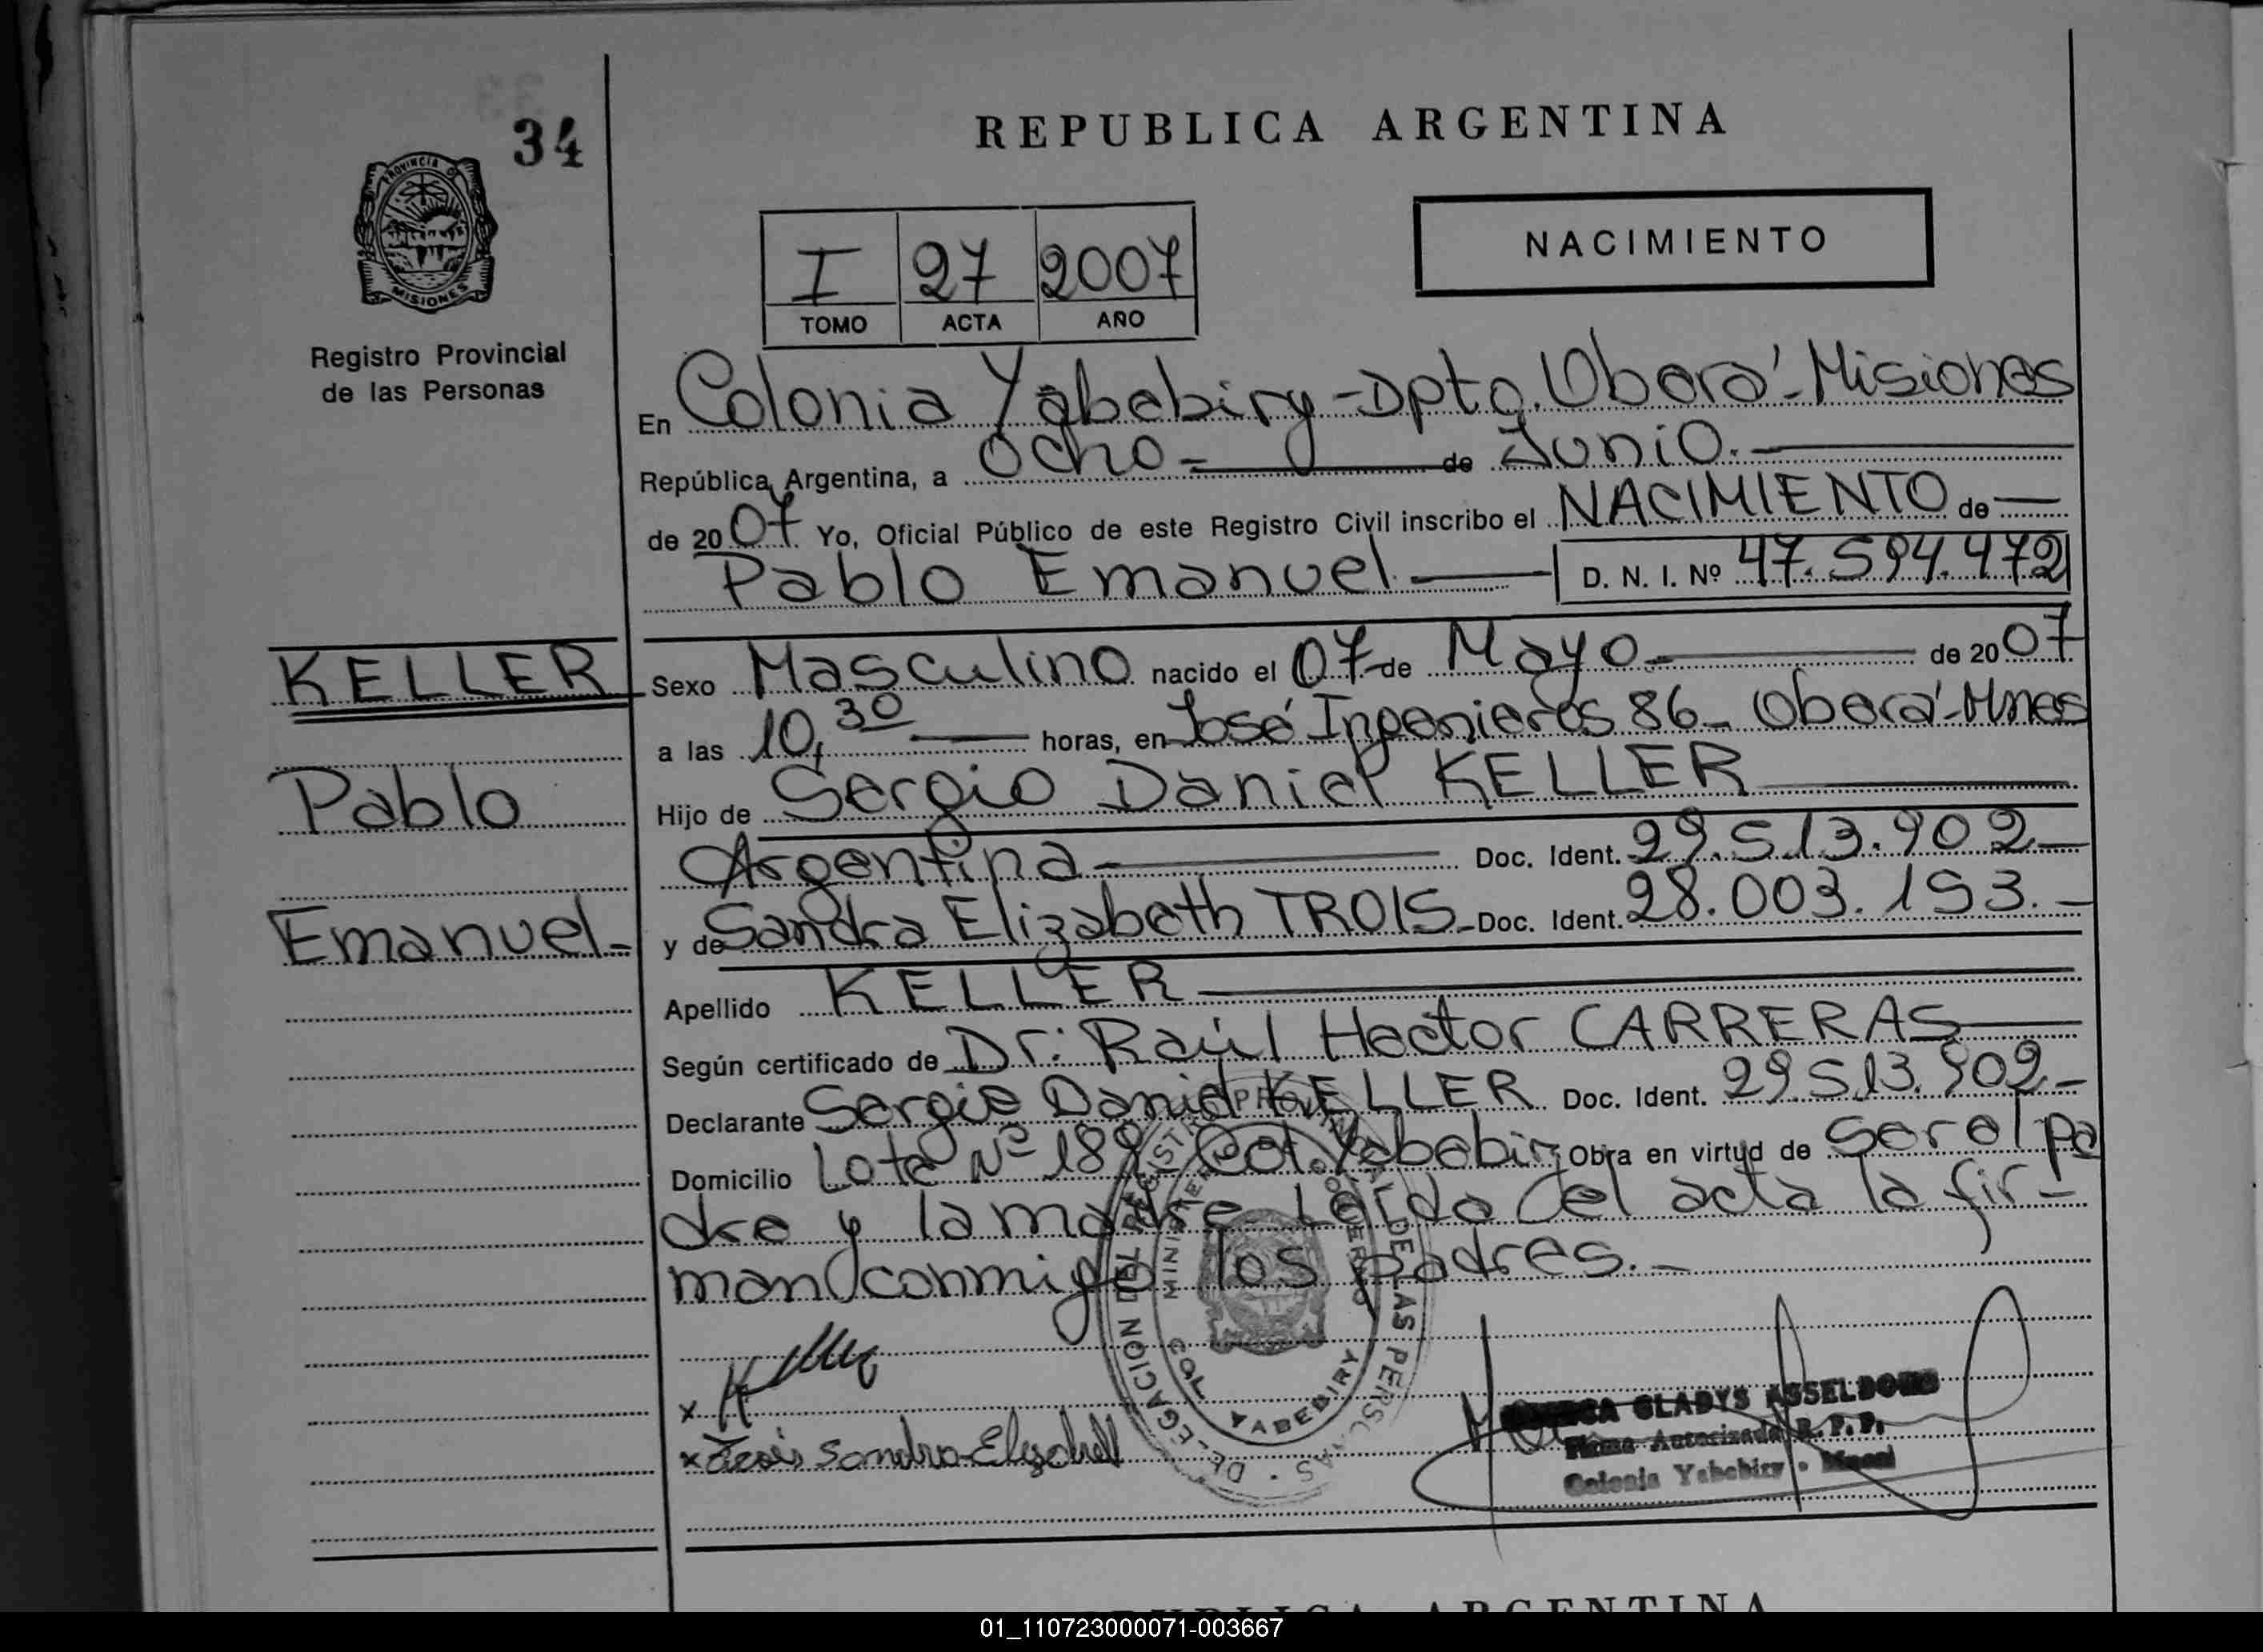 34
REPUBLICA ARGENTINA
PROVINCIA D
MISIONES
NACIMIENTO
I 27 2007
TOMO ACTA AÑO
Registro Provincial
de las Personas
En Colonia Yabebiry-Dpto. Oberá-Misiones
República Argentina, a Ocho.- de Junio.
de 2007 Yo, Oficial Público de este Registro Civil inscribo el NACIMIENTO de
Pablo Emanuel D. N. I. Nº 47.594.472
KELLER
Sexo Masculino nacido el 07 de Mayo.- de 2007
a las 10,30 horas, en José Ingenieros 86- Oberá-Mnes
Pablo
Hijo de Sergio Daniel KELLER
Argentina.- Doc. Ident. 29.513.902-
Emanuel.-
y de Sandra Elizabeth TROIS.- Doc. Ident. 28.003.153.-
Apellido KELLER
Según certificado de Dr: Raúl Hector CARRERAS
Declarante Sergio Daniel KELLER Doc. Ident. 29.513.902-
Domicilio Lote Nº 189- Col. Yabebiry Obra en virtud de Ser el pa
dre y la madre Leída el acta la fir-
man conmigo los padres.-
DELEGACION DE LAS PERSONAS
COL YABEBIRY
x Keller
x Trois Sandra Elizabeth
GLADYS ASSELBORN
Firma Autorizada R. P. P.
Colonia Yabebiry - Mnes
REPUBLICA ARGENTINA
01_110723000071-003667